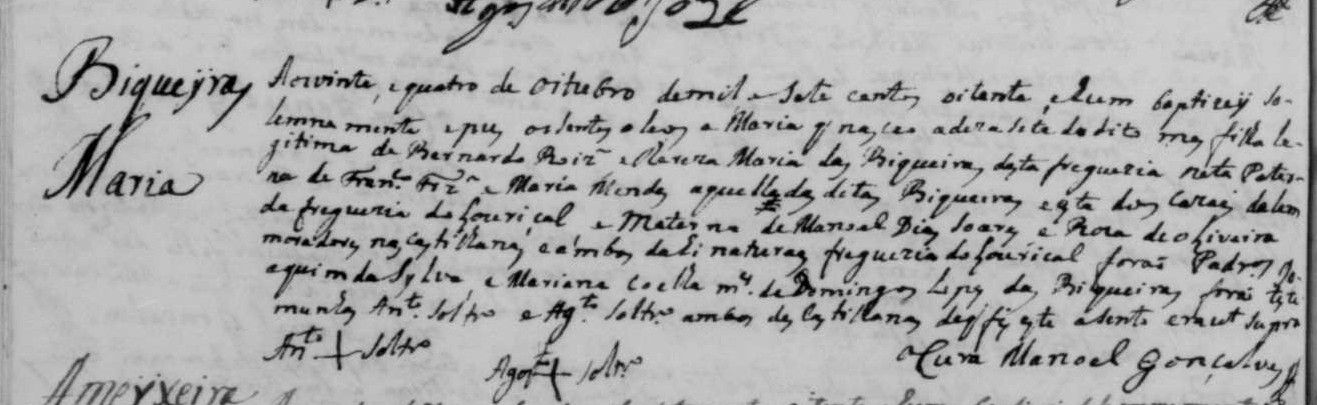 Biqueyras
Maria
Aos vinte, e quatro de oitubro de mil e sete centos oitenta, e hum baptizey so-
lemnemente e pus os santos oleos a Maria q nasceo a dezasete do dito mes filha le-
gitima de Bernardo Roiz e Maria das Biqueiras desta freguezia neta Pater-
na de Fran.co Frz e Maria Mendes aquelle das ditas Biqueiras e esta dos Cazais dalem
da freguezia do Louriçal e Materna de Manoel Dias Soares e Roza de oliveira
moradores nas Castilhanas e ambos dahi naturaes freguezia do Louriçal forão Padros Jo-
aquim da Sylva e Mariana Coelha m.er de Domingos Lopes das Biqueiras forão teste
munhas Ant.o Soltr.o e Ag.to Soltr.o ambos das Castilhanas de q fiz este asento era ut supra
O Cura Manoel Gonçalves
Ant.o + Soltr.o
Agost.o + Soltr.o
Ameyxeira